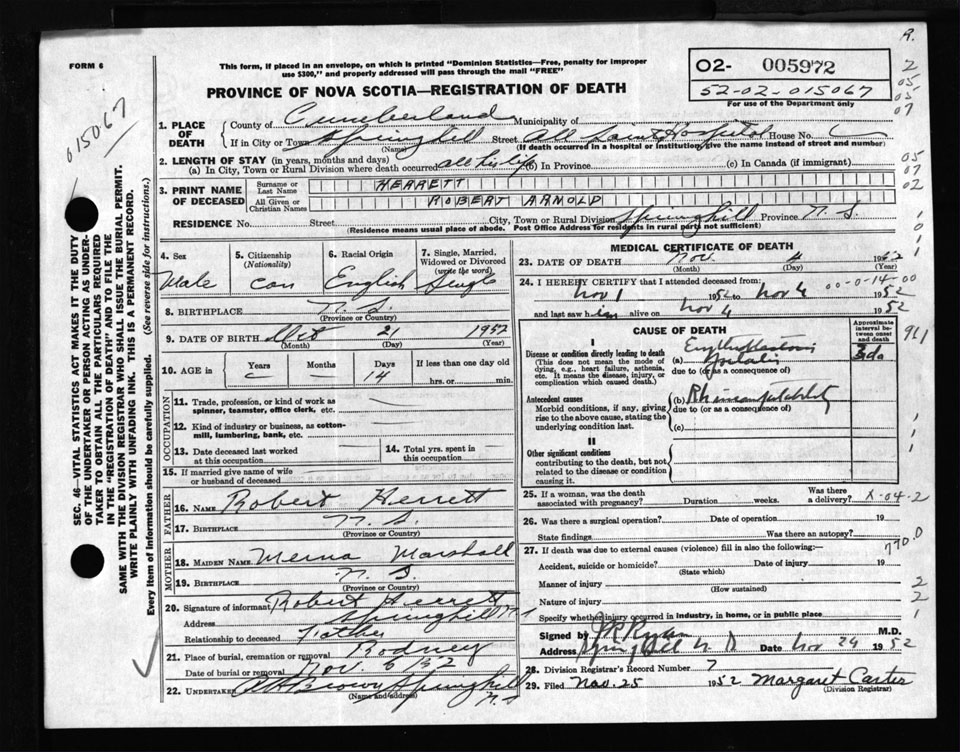 R.
FORM 6
This form, if placed in an envelope, on which is printed "Dominion Statistics—Free, penalty for improper
use $300," and properly addressed will pass through the mail "FREE"
PROVINCE OF NOVA SCOTIA—REGISTRATION OF DEATH
O2- 005972
52-02-015067
For use of the Department only
2
05
05
07
015067
1. PLACE OF DEATH
County of Cumberland Municipality of
If in City or Town Springhill Street All Saints Hospital House No.
(Name) (If death occurred in a hospital or institution, give the name instead of street and number)
2. LENGTH OF STAY (in years, months and days)
(a) In City, Town or Rural Division where death occurred all his life (b) In Province (c) In Canada (if immigrant)
05
07
02
3. PRINT NAME OF DECEASED
Surname or Last Name HERRETT
All Given or Christian Names ROBERT ARNOLD
RESIDENCE No. Street City, Town or Rural Division Springhill Province N. S.
(Residence means usual place of abode. Post Office Address for residents in rural parts not sufficient)
4. Sex Male
5. Citizenship (Nationality) Can
6. Racial Origin English
7. Single, Married, Widowed or Divorced (write the word) Single
8. BIRTHPLACE N. S.
(Province or Country)
9. DATE OF BIRTH Oct 21 1952
(Month) (Day) (Year)
10. AGE in Years Months Days 14 If less than one day old
hrs. or min.
OCCUPATION
11. Trade, profession, or kind of work as
spinner, teamster, office clerk, etc.
12. Kind of industry or business, as cotton-
mill, lumbering, bank, etc.
13. Date deceased last worked
at this occupation
14. Total yrs. spent in
this occupation
15. If married give name of wife
or husband of deceased
FATHER
16. NAME Robert Herrett
17. BIRTHPLACE N. S.
(Province or Country)
MOTHER
18. MAIDEN NAME Merna Marshall
19. BIRTHPLACE N. S.
(Province or Country)
20. Signature of informant Robert Herrett
Address Springhill N S
Relationship to deceased Father
21. Place of burial, cremation or removal Rodney
Date of burial or removal Nov. 6/52
22. UNDERTAKER Brown Springhill
(Name and address) N. S
MEDICAL CERTIFICATE OF DEATH
23. DATE OF DEATH Nov. 4 1952
(Month) (Day) (Year)
24. I HEREBY CERTIFY that I attended deceased from:
00-0-14-00
Nov 1 1952 to Nov 4 1952
and last saw him alive on Nov 4 1952
CAUSE OF DEATH
Approximate interval between onset and death
911
I
Disease or condition directly leading to death
(This does not mean the mode of
dying, e.g., heart failure, asthenia,
etc. It means the disease, injury, or
complication which caused death.)
(a) Erythroblastosis
3 da
due to (or as a consequence of)
Antecedent causes
Morbid conditions, if any, giving
rise to the above cause, stating the
underlying condition last.
(b)
due to (or as a consequence of)
(c)
II
Other significant conditions
contributing to the death, but not
related to the disease or condition
causing it.
25. If a woman, was the death
associated with pregnancy? Duration weeks. Was there
a delivery? X-04-2
26. Was there a surgical operation? Date of operation 19
State findings Was there an autopsy?
770.0
27. If death was due to external causes (violence) fill in also the following:—
Accident, suicide or homicide? Date of injury 19
(State which)
Manner of injury
(How sustained)
Nature of injury
Specify whether injury occurred in industry, in home, or in public place
Signed by M.D.
Address Springhill N. S Date Nov 24 1952
28. Division Registrar's Record Number 7
29. Filed Nov. 25 1952 Margaret Carter
(Division Registrar)
SEC. 46—VITAL STATISTICS ACT MAKES IT THE DUTY
OF THE UNDERTAKER OR PERSON ACTING AS UNDER-
TAKER TO OBTAIN ALL THE PARTICULARS REQUIRED
IN THE "REGISTRATION OF DEATH" AND TO FILE THE
SAME WITH THE DIVISION REGISTRAR WHO SHALL ISSUE THE BURIAL PERMIT.
WRITE PLAINLY WITH UNFADING INK. THIS IS A PERMANENT RECORD.
Every item of information should be carefully supplied. (See reverse side for instructions.)